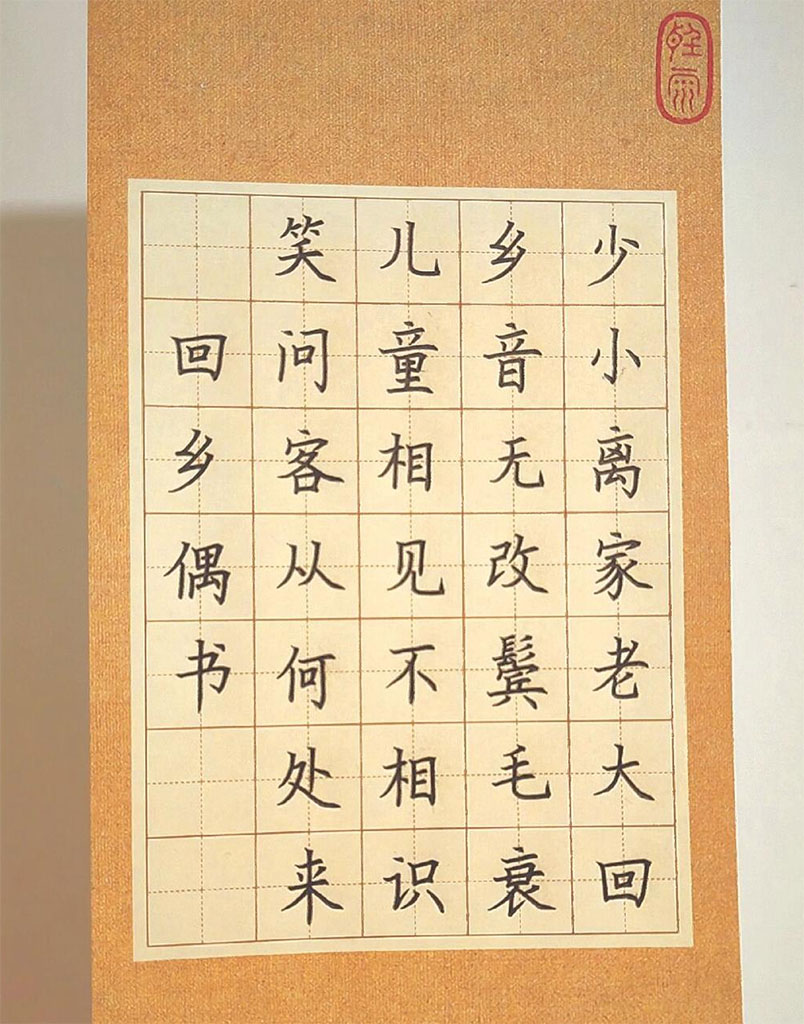 少小离家老大回
乡音无改鬓毛衰
儿童相见不相识
笑问客从何处来
回乡偶书